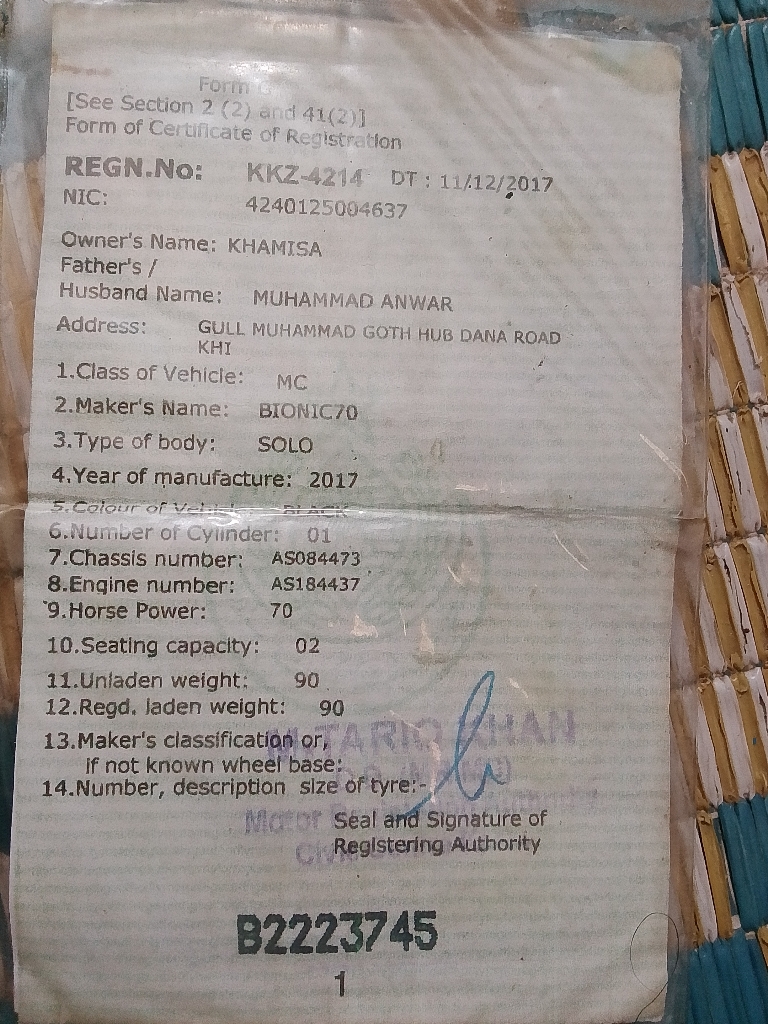 Form G
[See Section 2 (2) and 41(2)]
Form of Certificate of Registration
REGN.No: KKZ-4214 DT : 11/12/2017
NIC: 4240125004637
Owner's Name: KHAMISA
Father's /
Husband Name: MUHAMMAD ANWAR
Address: GULL MUHAMMAD GOTH HUB DANA ROAD
KHI
1.Class of Vehicle: MC
2.Maker's Name: BIONIC70
3.Type of body: SOLO
4.Year of manufacture: 2017
5.Colour of Vehicle: BLACK
6.Number of Cylinder: 01
7.Chassis number: AS084473
8.Engine number: AS184437
9.Horse Power: 70
10.Seating capacity: 02
11.Unladen weight: 90
12.Regd. laden weight: 90
M.TARIQ KHAN
13.Maker's classification or,
if not known wheel base:
14.Number, description size of tyre:-
Motor
Seal and Signature of
Registering Authority
B2223745
1